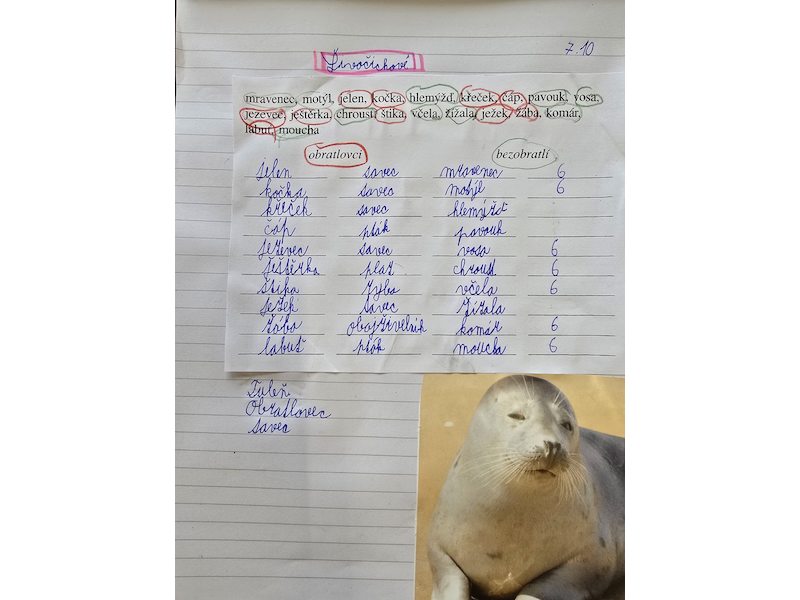 7.10
Živočichové
mravenec, motýl, jelen, kočka, hlemýžď, křeček, čáp, pavouk, vosa,
jezevec, ještěrka, chroust, štika, včela, žížala, ježek, žába, komár,
labuť, moucha
obratlovci bezobratlí
jelen savec mravenec 6
kočka savec motýl 6
křeček savec hlemýžď
čáp pták pavouk
jezevec savec vosa 6
ještěrka plaz chroust 6
štika ryba včela 6
ježek savec žížala
žába obojživelník komár 6
labuť pták moucha 6
Tuleň
Obratlovec
savec